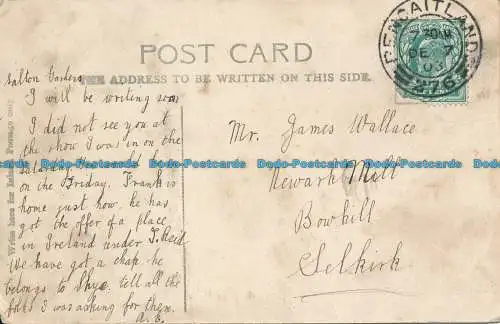 POST CARD
THE ADDRESS TO BE WRITTEN ON THIS SIDE.
Salton Gardens
I will be writing soon
I did not see you at
the show I was in on the
Saturday
on the Friday. Frank is
home just now he has
got the offer of a place
in Ireland under T. Reid
We have got a chap he
belongs to Skye. tell all the
folks I was asking for them.
Mr. James Wallace
Newark Mill
Bowhill
Selkirk
PENCAITLAND
DE 7
03
276
Dodo-Postcards Dodo-Postcards Dodo-Postcards Dodo-Postcards